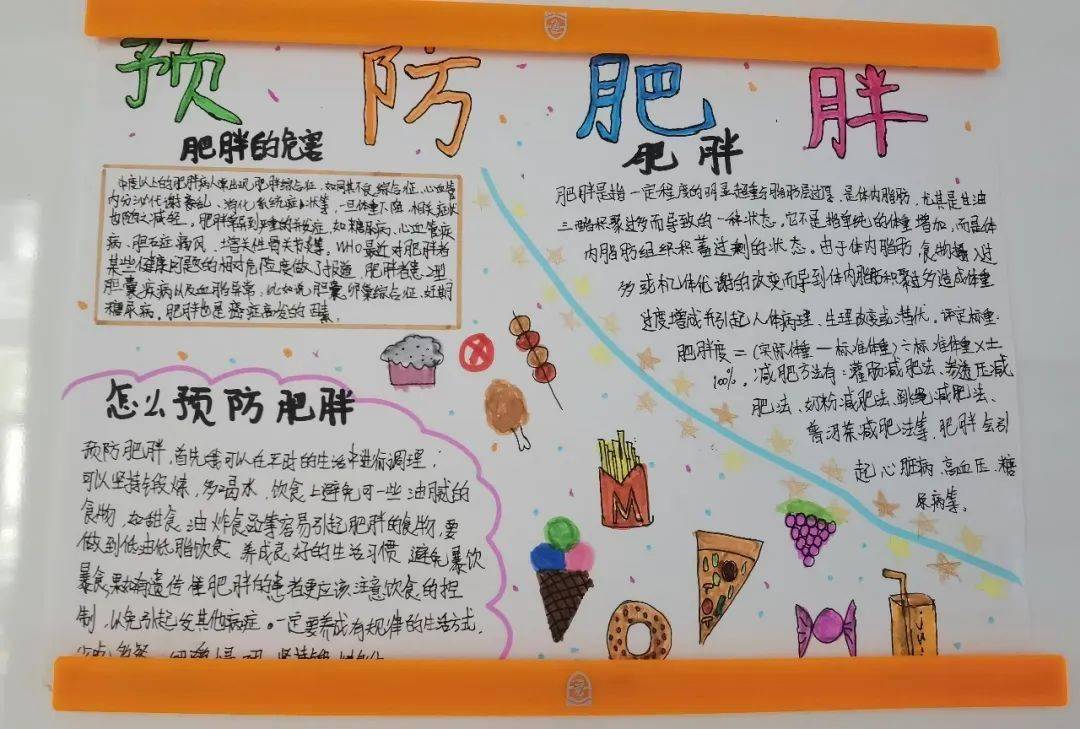 预防肥胖
肥胖的危害
中度以上的肥胖病人常出现肥胖综合征,如同其不良综合征,心血管
内分泌代谢紊乱、消化系统症状等,一旦体重下降,相关症状
减轻。肥胖常导到严重的并发症,如糖尿病、心血管疾
病、胆石症痛风、骨关节炎等。WHO最近对肥胖者
某些健康问题的相对危险度做了报道,肥胖者患2型
胆囊疾病以及血脂异常,比如说胆囊,卵巢综合征,近期
糖尿病。肥胖也是癌症高发的因素。
肥胖
肥胖是指一定程度的明显超重与脂肪层过厚,是体内脂肪,尤其是甘油
三酯积聚过多而导致的一种状态。它不是指单纯的体重增加,而是体
内脂肪组织积蓄过剩的状态。由于体内脂肪,食物摄入过
多或机体代谢的改变而导到体内脂肪积聚过多造成体重
过度增成并引起人体病理、生理改变或潜伏。评定标重:
肥胖度=(实际体重-标准体重)÷标准体重×±
100%。减肥方法有:灌肠减肥法、渗透压减
肥法、奶粉减肥法、跳绳减肥法、
普洱茶减肥法等,肥胖会引
起心脏病、高血压、糖
尿病等。
怎么预防肥胖
预防肥胖,首先我可以在平时的生活中进行调理,
可以坚持锻炼,多喝水,饮食上避免可一些油腻的
食物,如甜食,油炸食品等容易引起肥胖的食物,要
做到低油低脂饮食,养成良好的生活习惯,避免暴饮
暴食,如有遗传性肥胖的患者更应该注意饮食的控
制,以免引起发其他病症。一定要养成有规律的生活方式,
细嚼慢咽,坚持
M